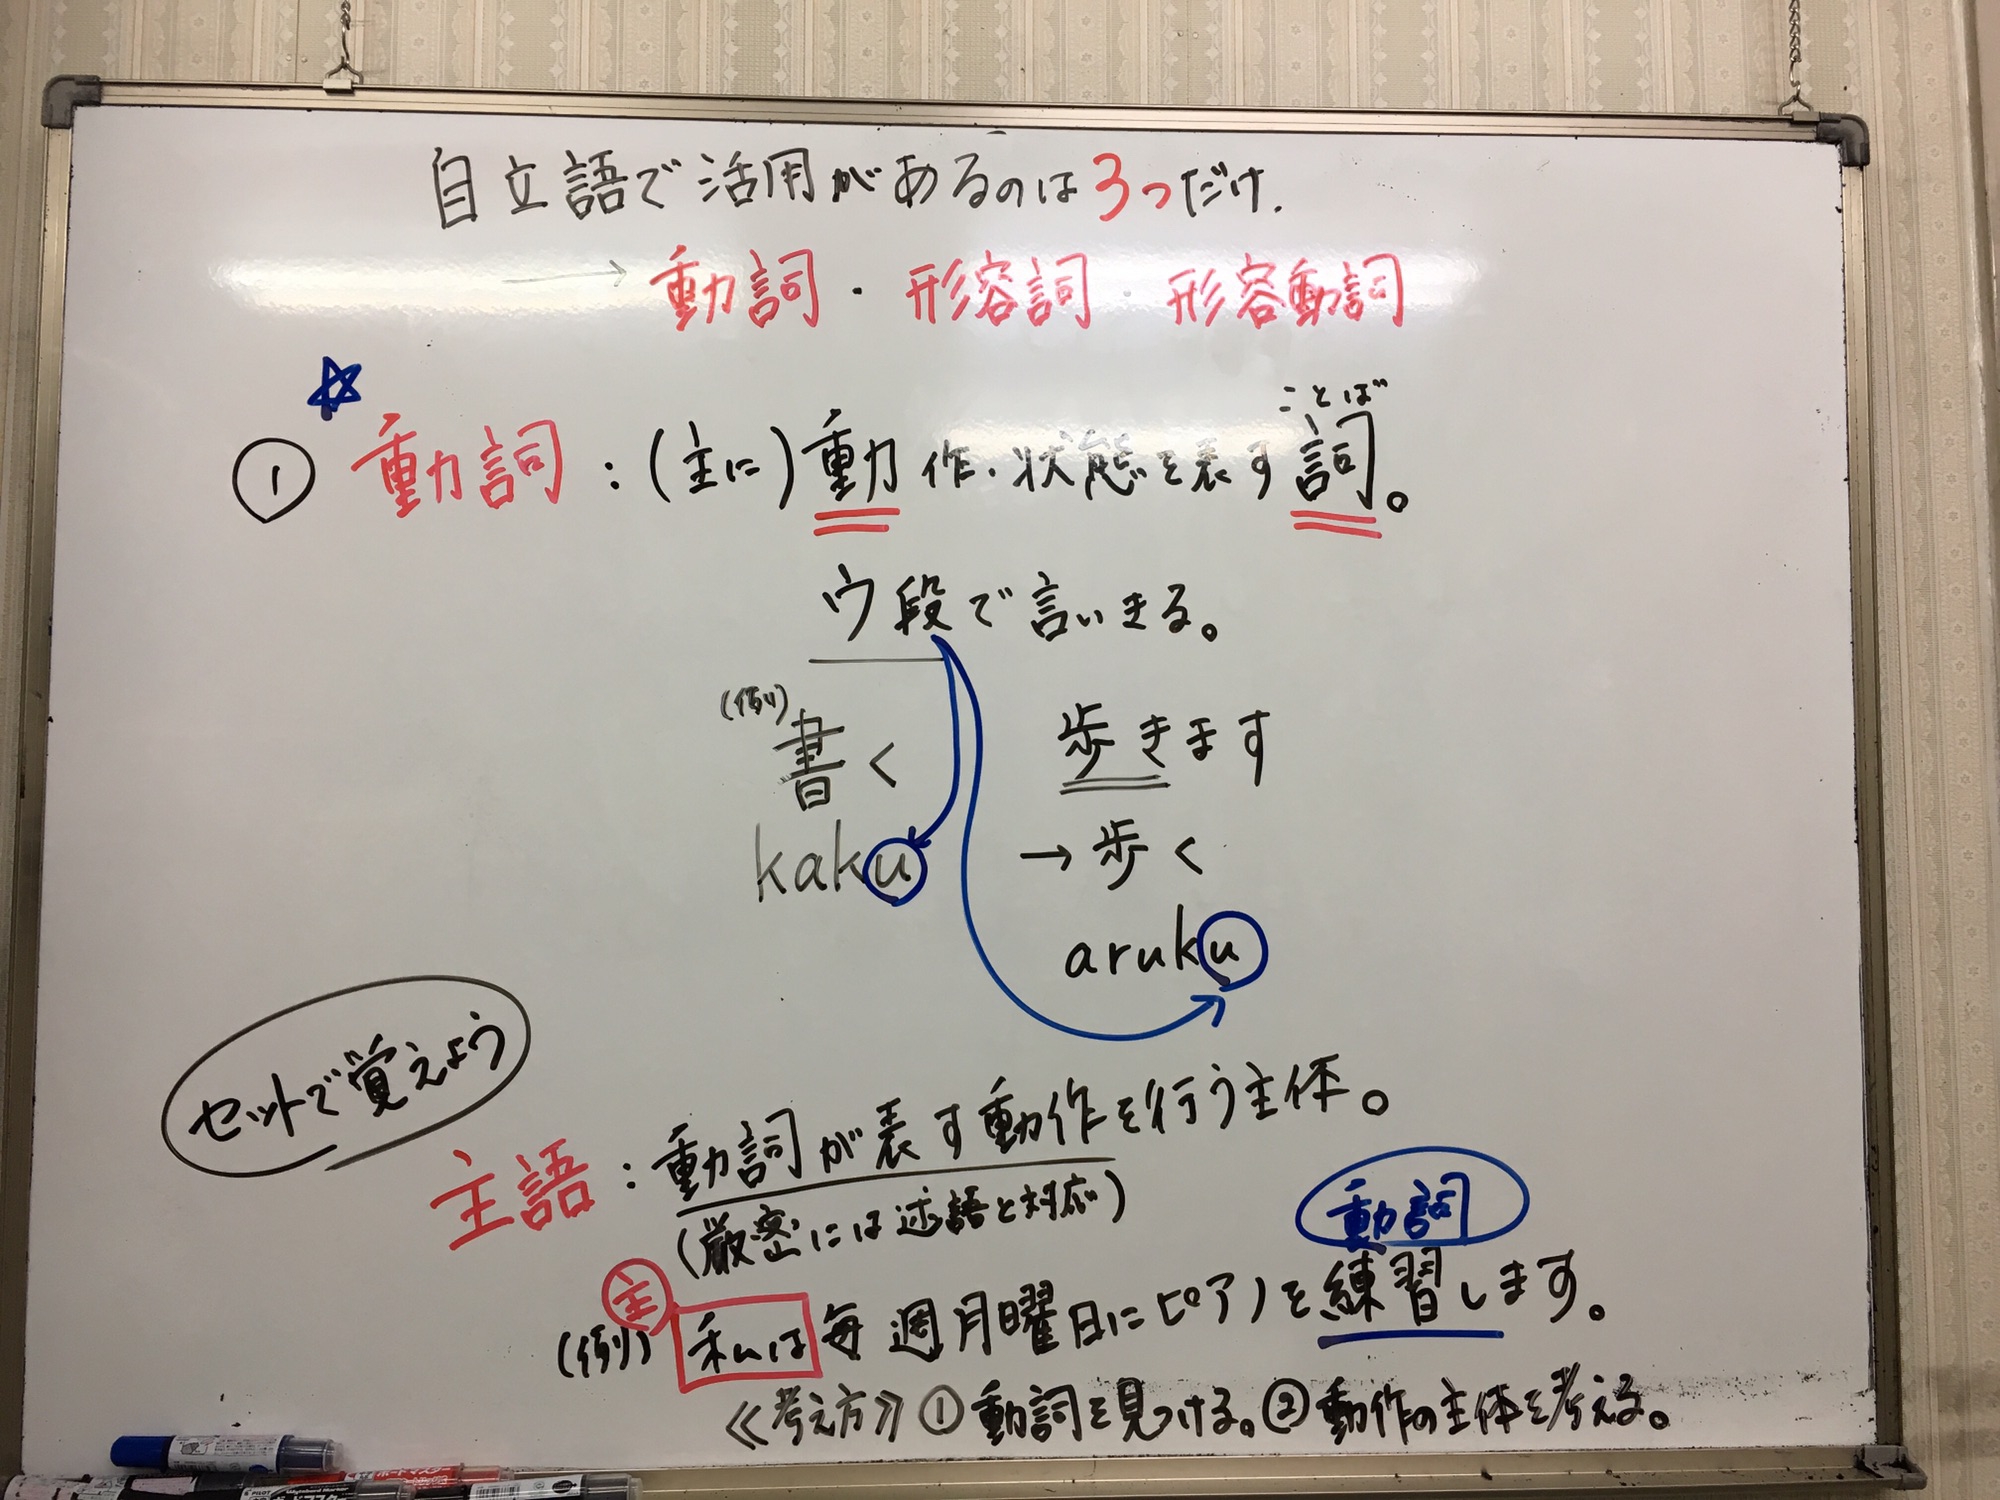 自立語で活用があるのは3つだけ.
→ 動詞・形容詞・形容動詞
ことば
① 動詞：(主に)動作・状態を表す詞。
ウ段で言いきる。
(例)
書く 歩きます
kaku → 歩く
aruku
セットで覚えよう
主語：動詞が表す動作を行う主体。
(厳密には述語と対応)
動詞
主
(例) 私は毎週月曜日にピアノを練習します。
≪考え方≫ ①動詞を見つける。②動作の主体を考える。
ボードマスター
Whiteboard Marker
PILOT
ボードマスター